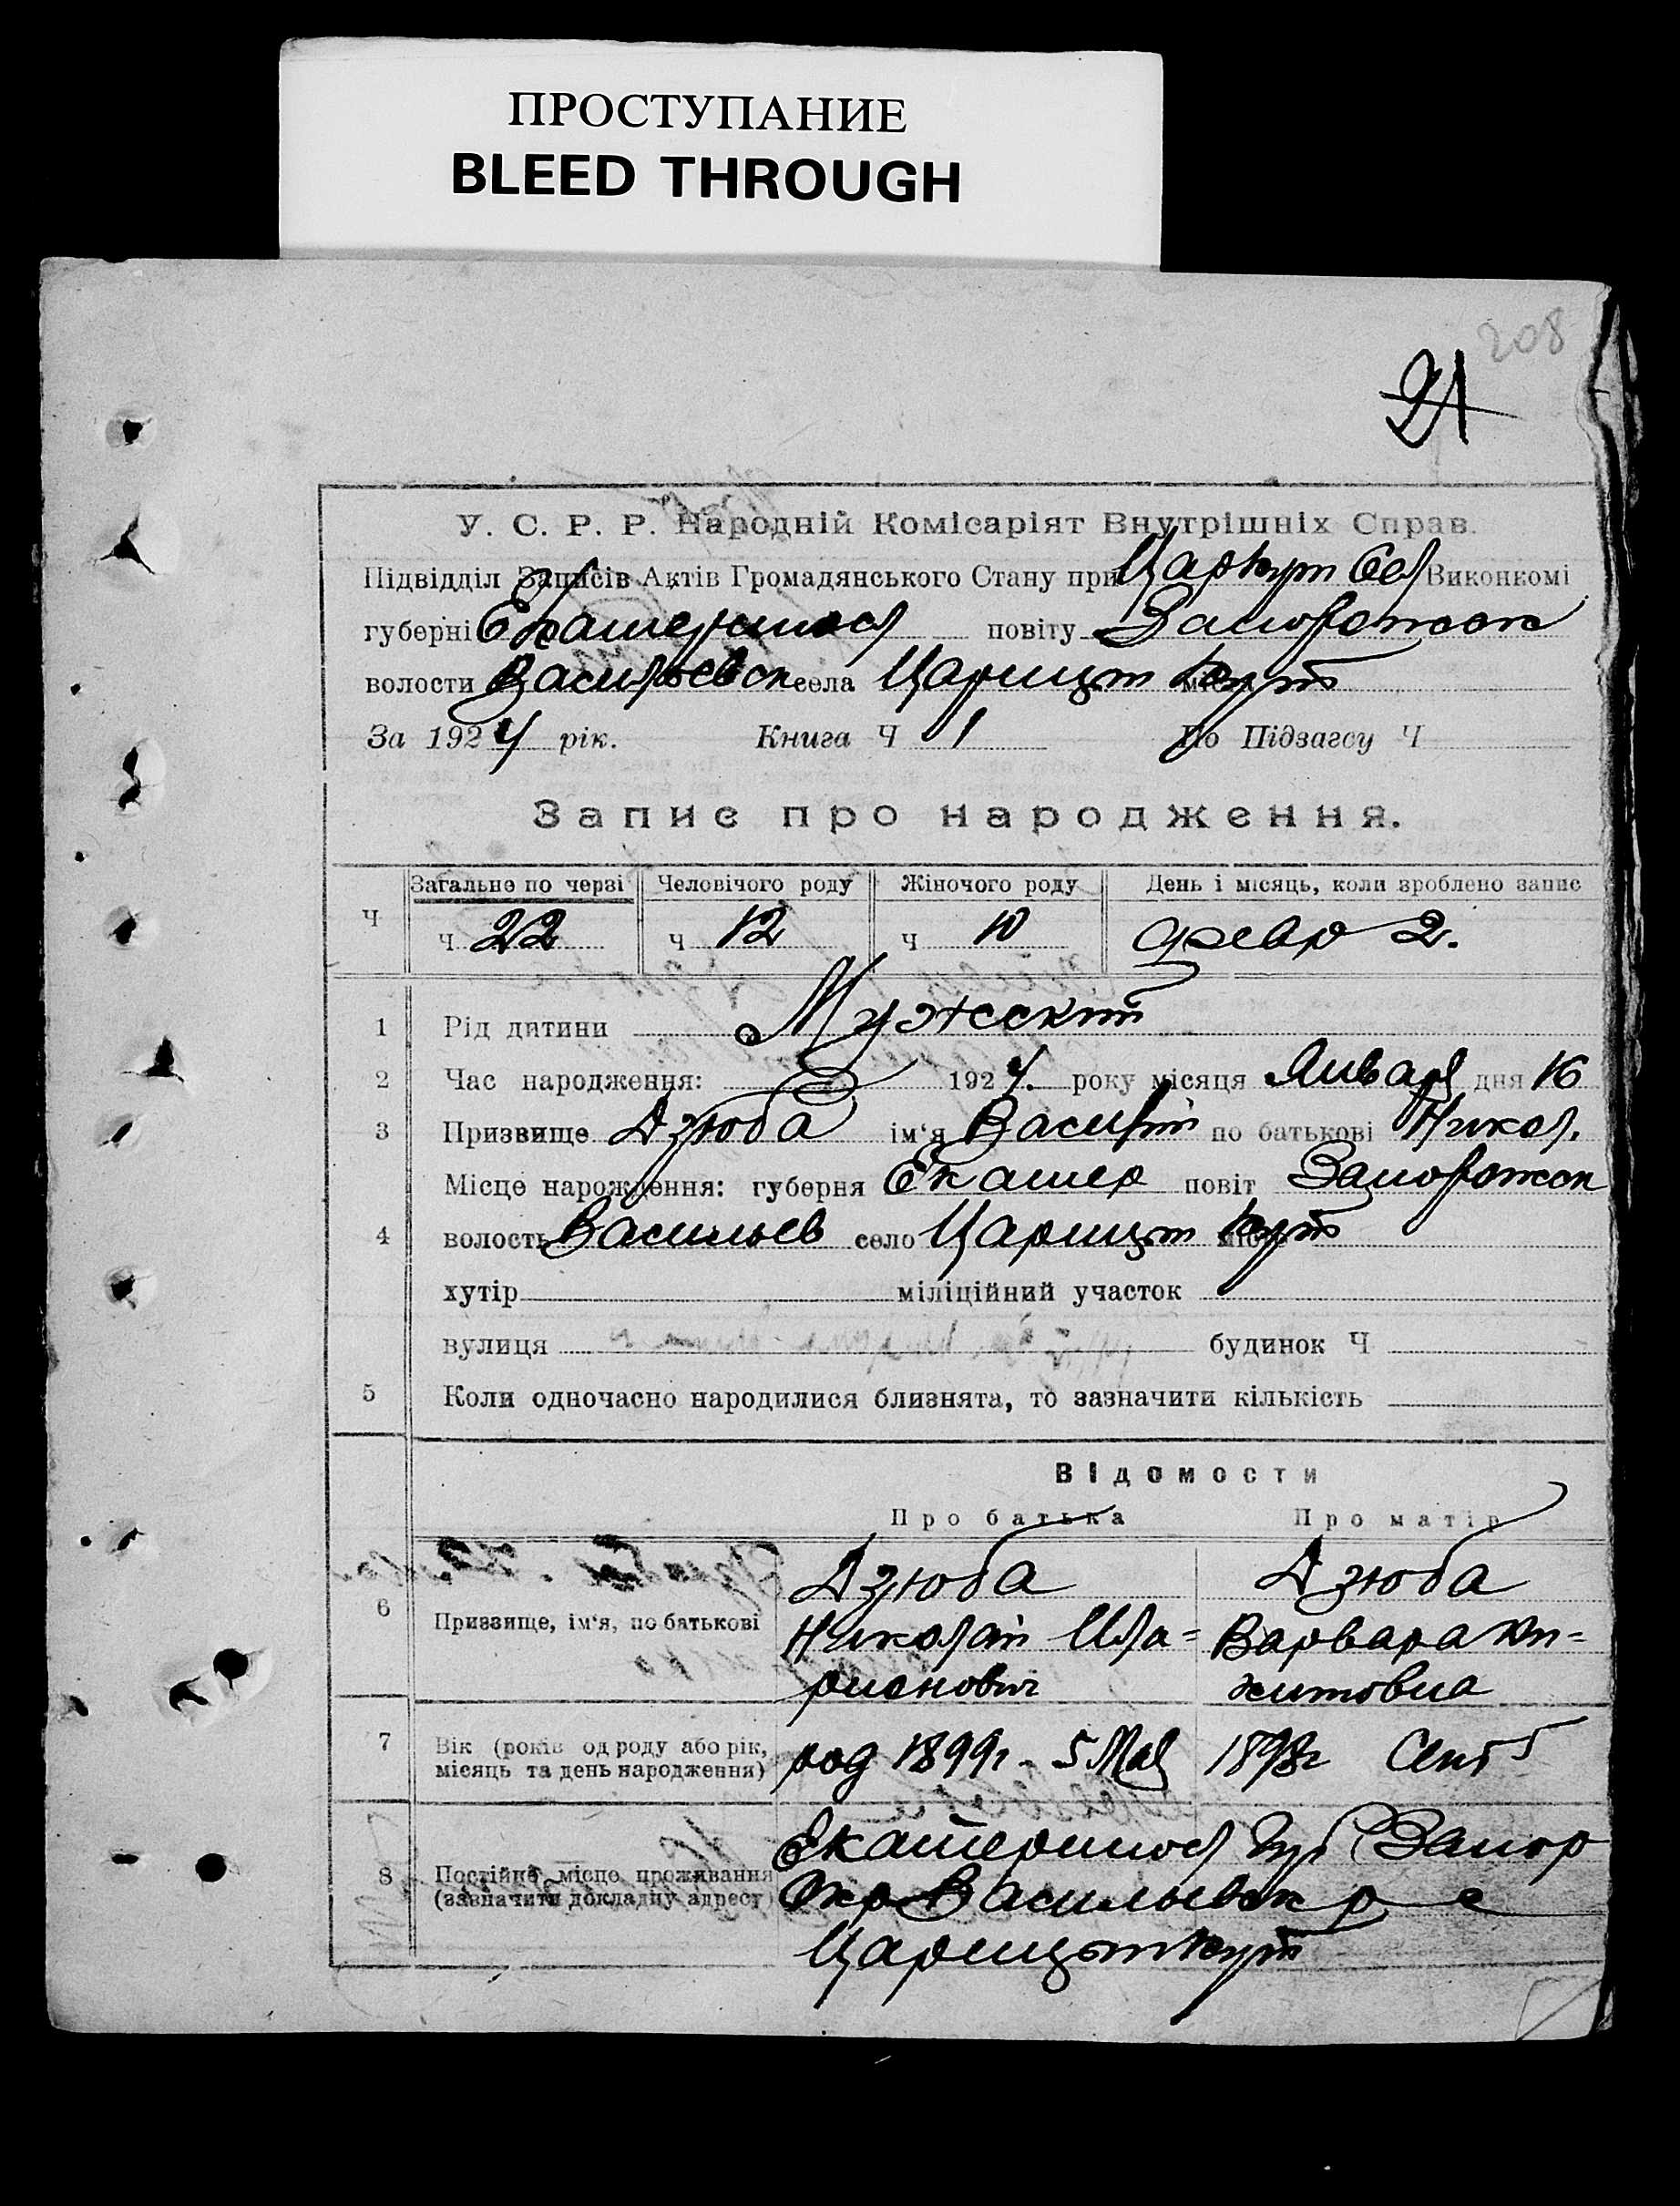 ПРОСТУПАНИЕ
BLEED THROUGH
208
21
У. С. Р. Р. Народній Комісаріят Внутрішніх Справ.
Підвідділ Записів Актів Громадянського Стану при Царкут Сел Виконкомі
губерні Екатеринос повіту Запорожск
волости Васильевск села Царицын місто Кут
За 1924 рік. Книга Ч 1 По Підзагсу Ч
Запис про народження.
Ч Загальне по черзі Человічого роду Жіночого роду День і місяць, коли зроблено запис
ч 22 ч 12 ч 10 февр 2.
1 Рід дитини Мужский
2 Час народження: 1924. року місяця Января дня 16
3 Призвище Дзюба ім'я Василий по батькові Никол.
Місце народження: губерня Екатер повіт Запорожск
4 волость Васильев село Царицын місто Кут
хутір міліційний участок
вулиця будинок Ч
5 Коли одночасно народилися близнята, то зазначити кількість
Відомости
Про батька Про матір
6 Призвище, ім'я, по батькові
Дзюба Дзюба
Николай Ила= Варвара
рионович
7 Вік (років од роду або рік, місяць та день народження) род 1899г. 5 Мая 1898г Сент 5
8 Постійне місце проживання (зазначити докладну адресу)
Екатеринос Губ Запор
Окр Васильевск р с
Царицын Кут